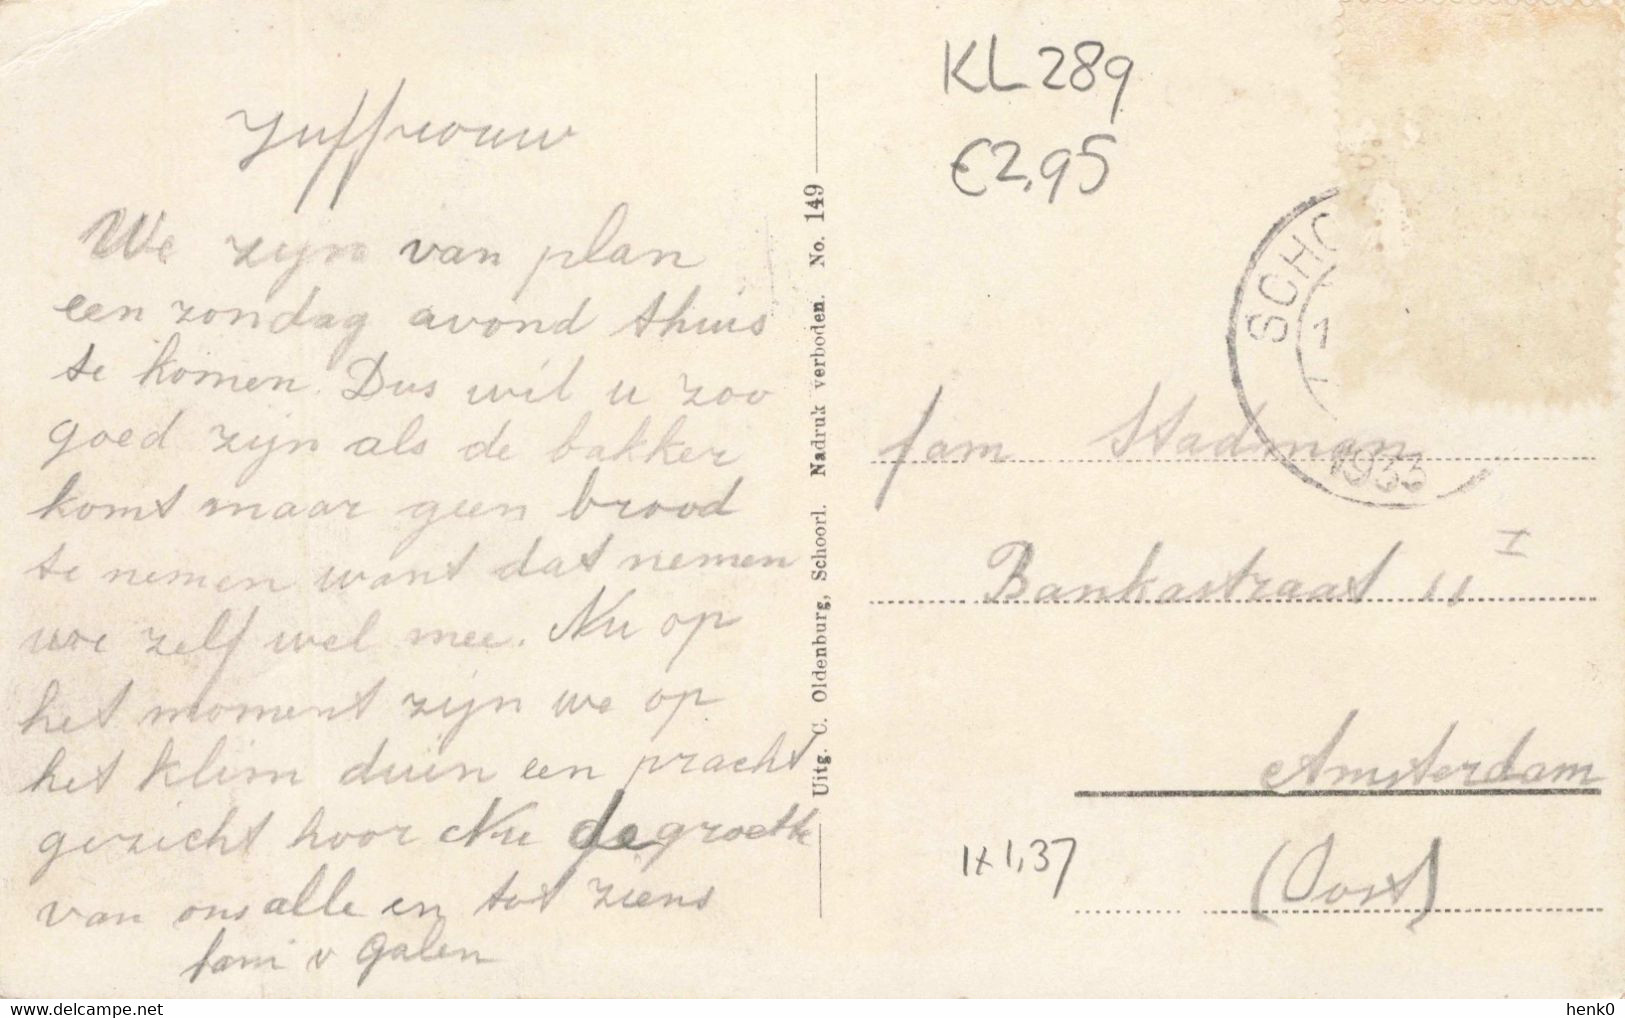 Juffrouw
We zijn van plan
een zondag avond thuis
te komen. Dus wil u zoo
goed zijn als de bakker
komt maar geen brood
te nemen want dat nemen
we zelf wel mee. Nu op
het moment zijn we op
het klim duin een pracht
gezicht hoor Nu de groette
van ons alle en tot ziens
fam v Galen
Uitg. C. Oldenburg, Schoorl. Nadruk verboden. No. 149
KL 289
€2,95
SCHO
1
1933
fam Stadman
Bankastraat 11 I
Amsterdam
(Oost)
1x1,37
www.delcampe.net
henk0